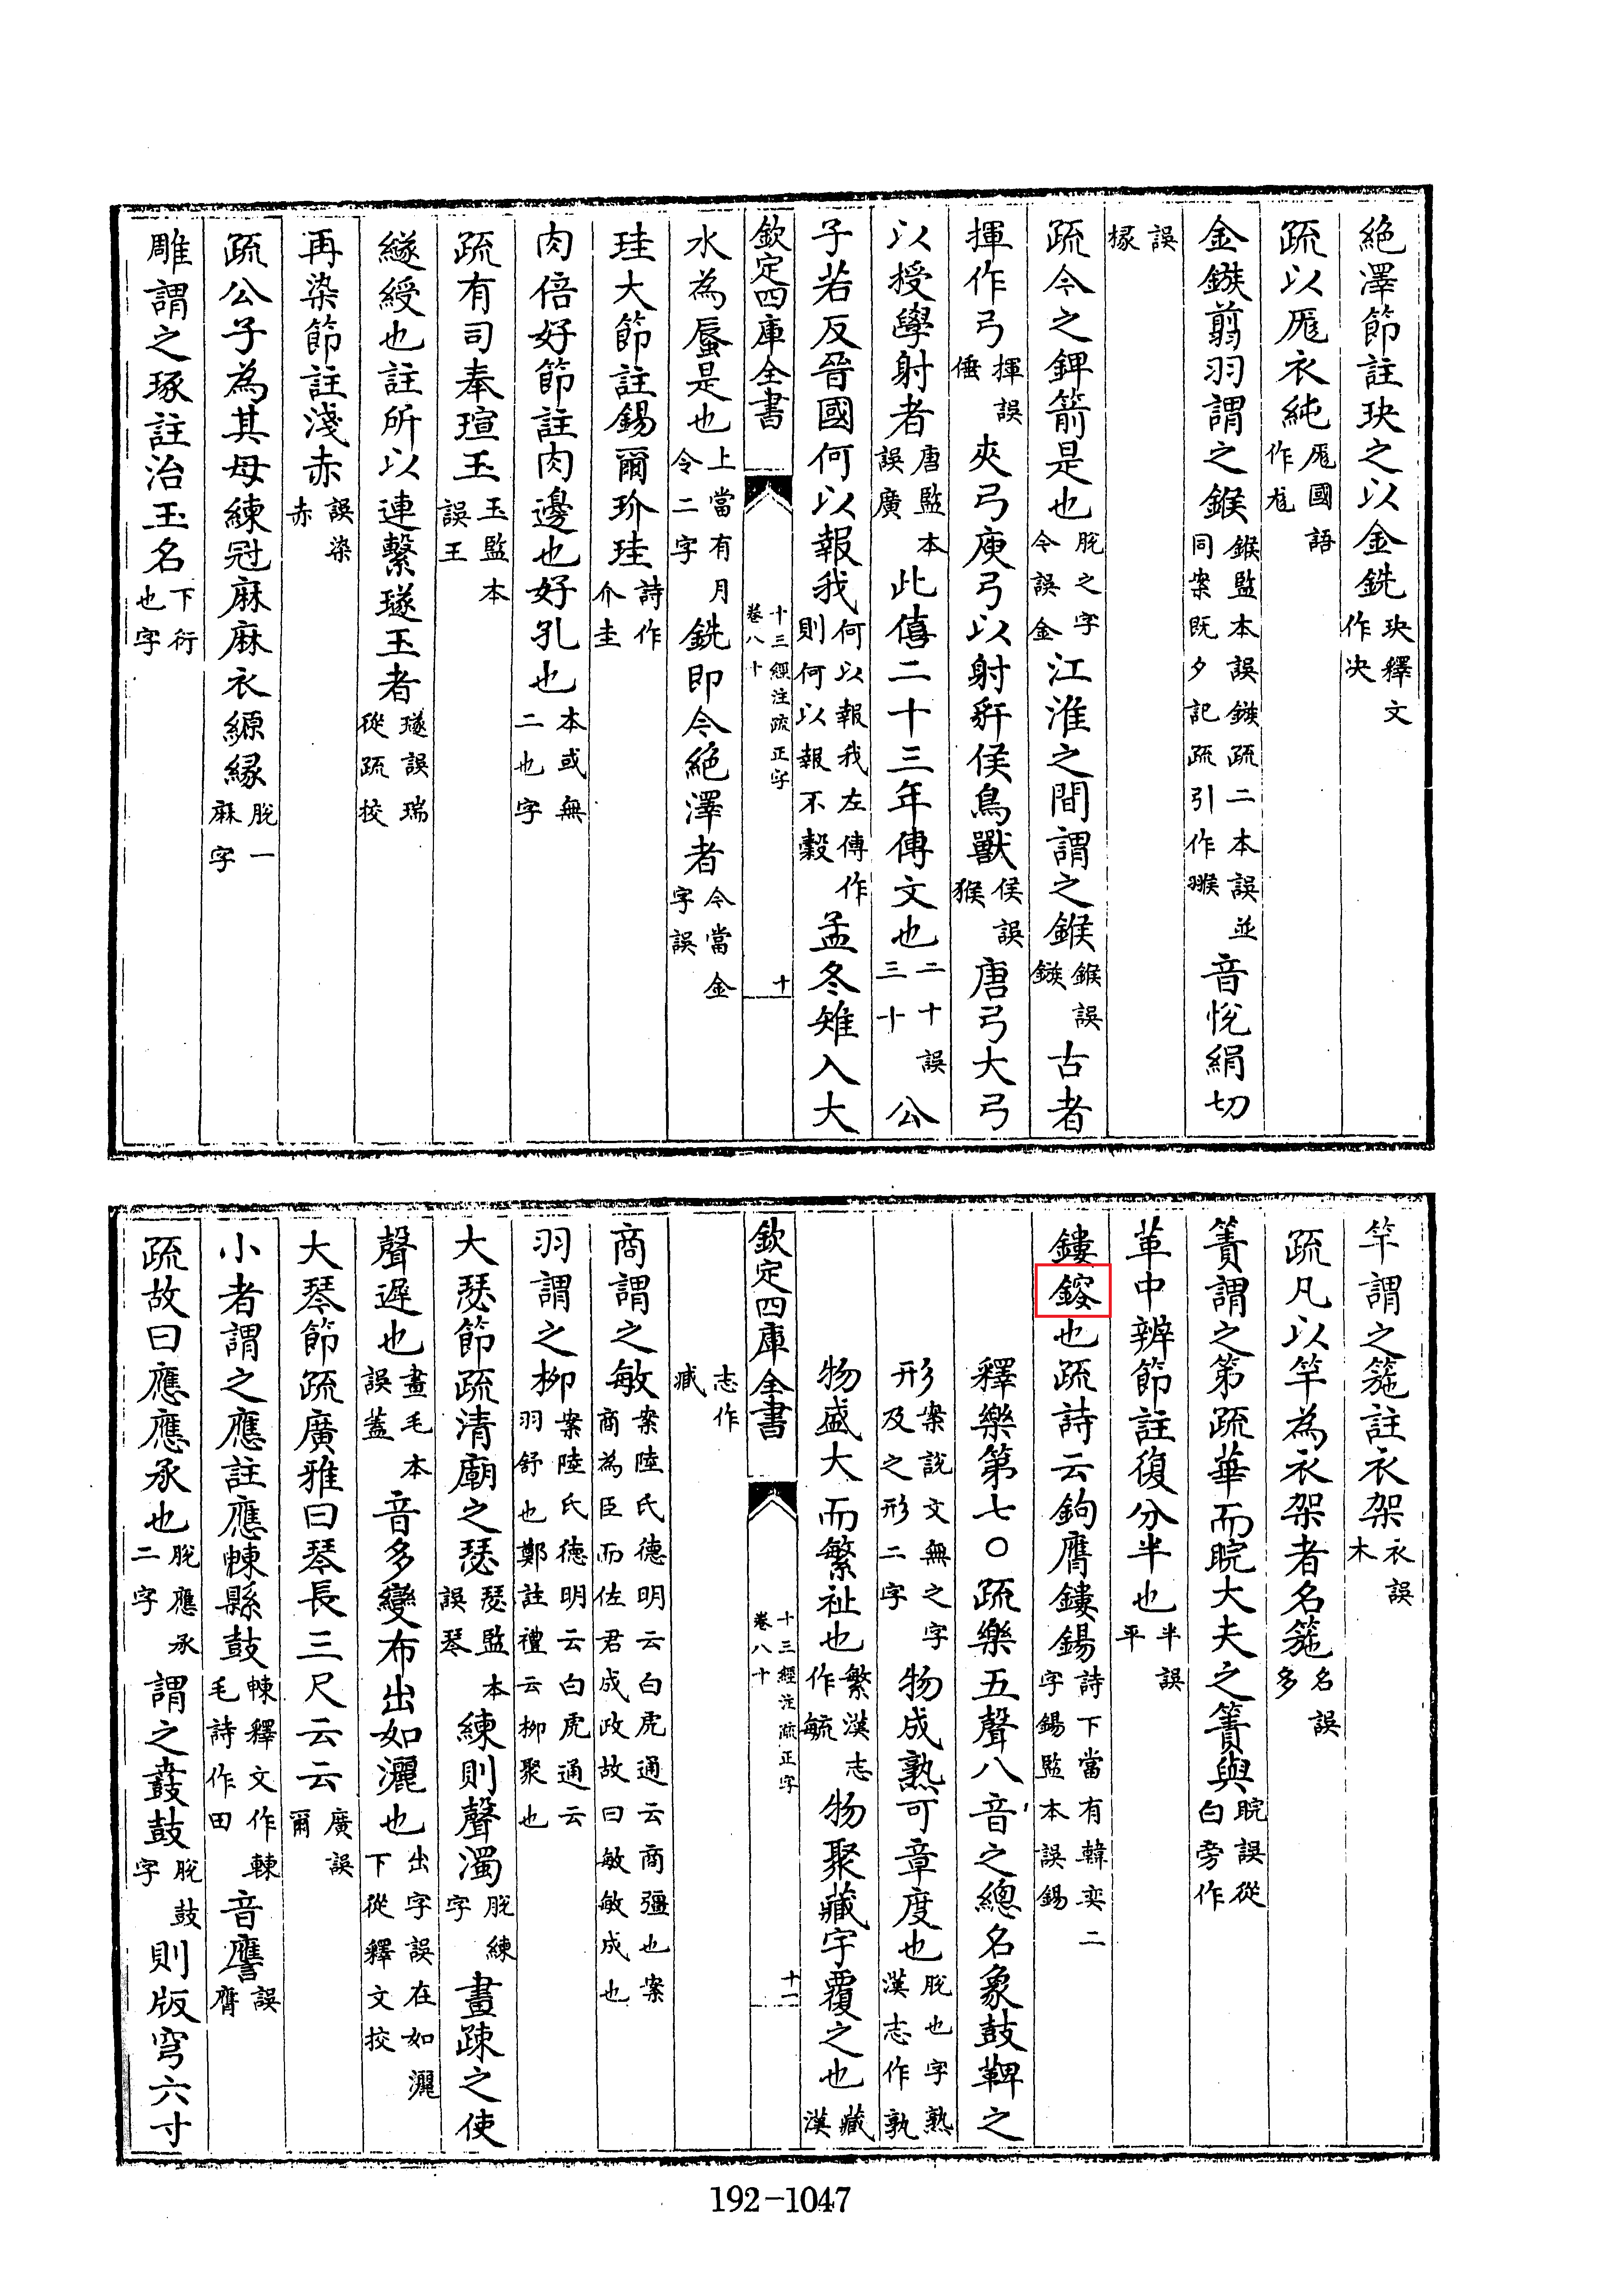 絶澤節註玦之以金銑玦釋文作决
疏以厖衣純厖國語作尨
金鏃翦羽謂之鍭鍭監本誤鏃疏二本誤並同案既夕記疏引作猴音悅絹切
誤掾
疏今之錍箭是也脫之字今誤金江淮之間謂之鍭鍭誤鏃古者
揮作弓揮誤倕夾弓庾弓以射豻侯鳥獸侯誤猴唐弓大弓
以授學射者唐監本誤廣此僖二十三年傳文也二十誤三十公
子若反晉國何以報我何以報我左傳作則何以報不穀孟冬雉入大
欽定四庫全書
十三經注疏正字
卷八十
十
水為蜃是也上當有月令二字銑即令絶澤者令當金字誤
珪大節註錫爾玠珪詩作介圭
肉倍好節註肉邊也好孔也本或無二也字
疏有司奉瑄玉玉監本誤王
繸綬也註所以連繫璲玉者璲誤瑞從疏挍
再染節註淺赤誤染赤
疏公子為其母練冠麻麻衣縓縁脫一麻字
雕謂之琢註治玉名下衍也字
竿謂之箷註衣架衣誤木
疏凡以竿為衣架者名箷名誤多
簀謂之第疏華而睆大夫之簀與睆誤從白旁作
革中辨節註復分半也半誤平
鏤鎪也疏詩云鉤膺鏤鍚詩下當有韓奕二字鍚監本誤錫
釋樂第七○疏樂五聲八音之總名象鼓鞞之
形案說文無之字及之形二字物成熟可章度也脫也字熟漢志作孰
物盛大而繁祉也繁漢志作毓物聚藏宇覆之也藏漢
欽定四庫全書
十三經注疏正字
卷八十
十一
志作臧
商謂之敏案陸氏德明云白虎通云商彊也案商為臣而佐君成政故曰敏敏成也
羽謂之柳案陸氏德明云白虎通云羽舒也鄭註禮云柳聚也
大瑟節疏清廟之瑟瑟監本誤琴練則聲濁脫練字畫疎之使
聲遲也畫毛本誤盖音多變布出如灑也出字誤在如灑下從釋文挍
大琴節疏廣雅曰琴長三尺云云廣誤爾
小者謂之應註應朄縣鼓朄釋文作㯥毛詩作田音譍誤膺
疏故曰應應承也脫應承二字謂之鼖鼓脫鼓字則版穹六寸
192-1047